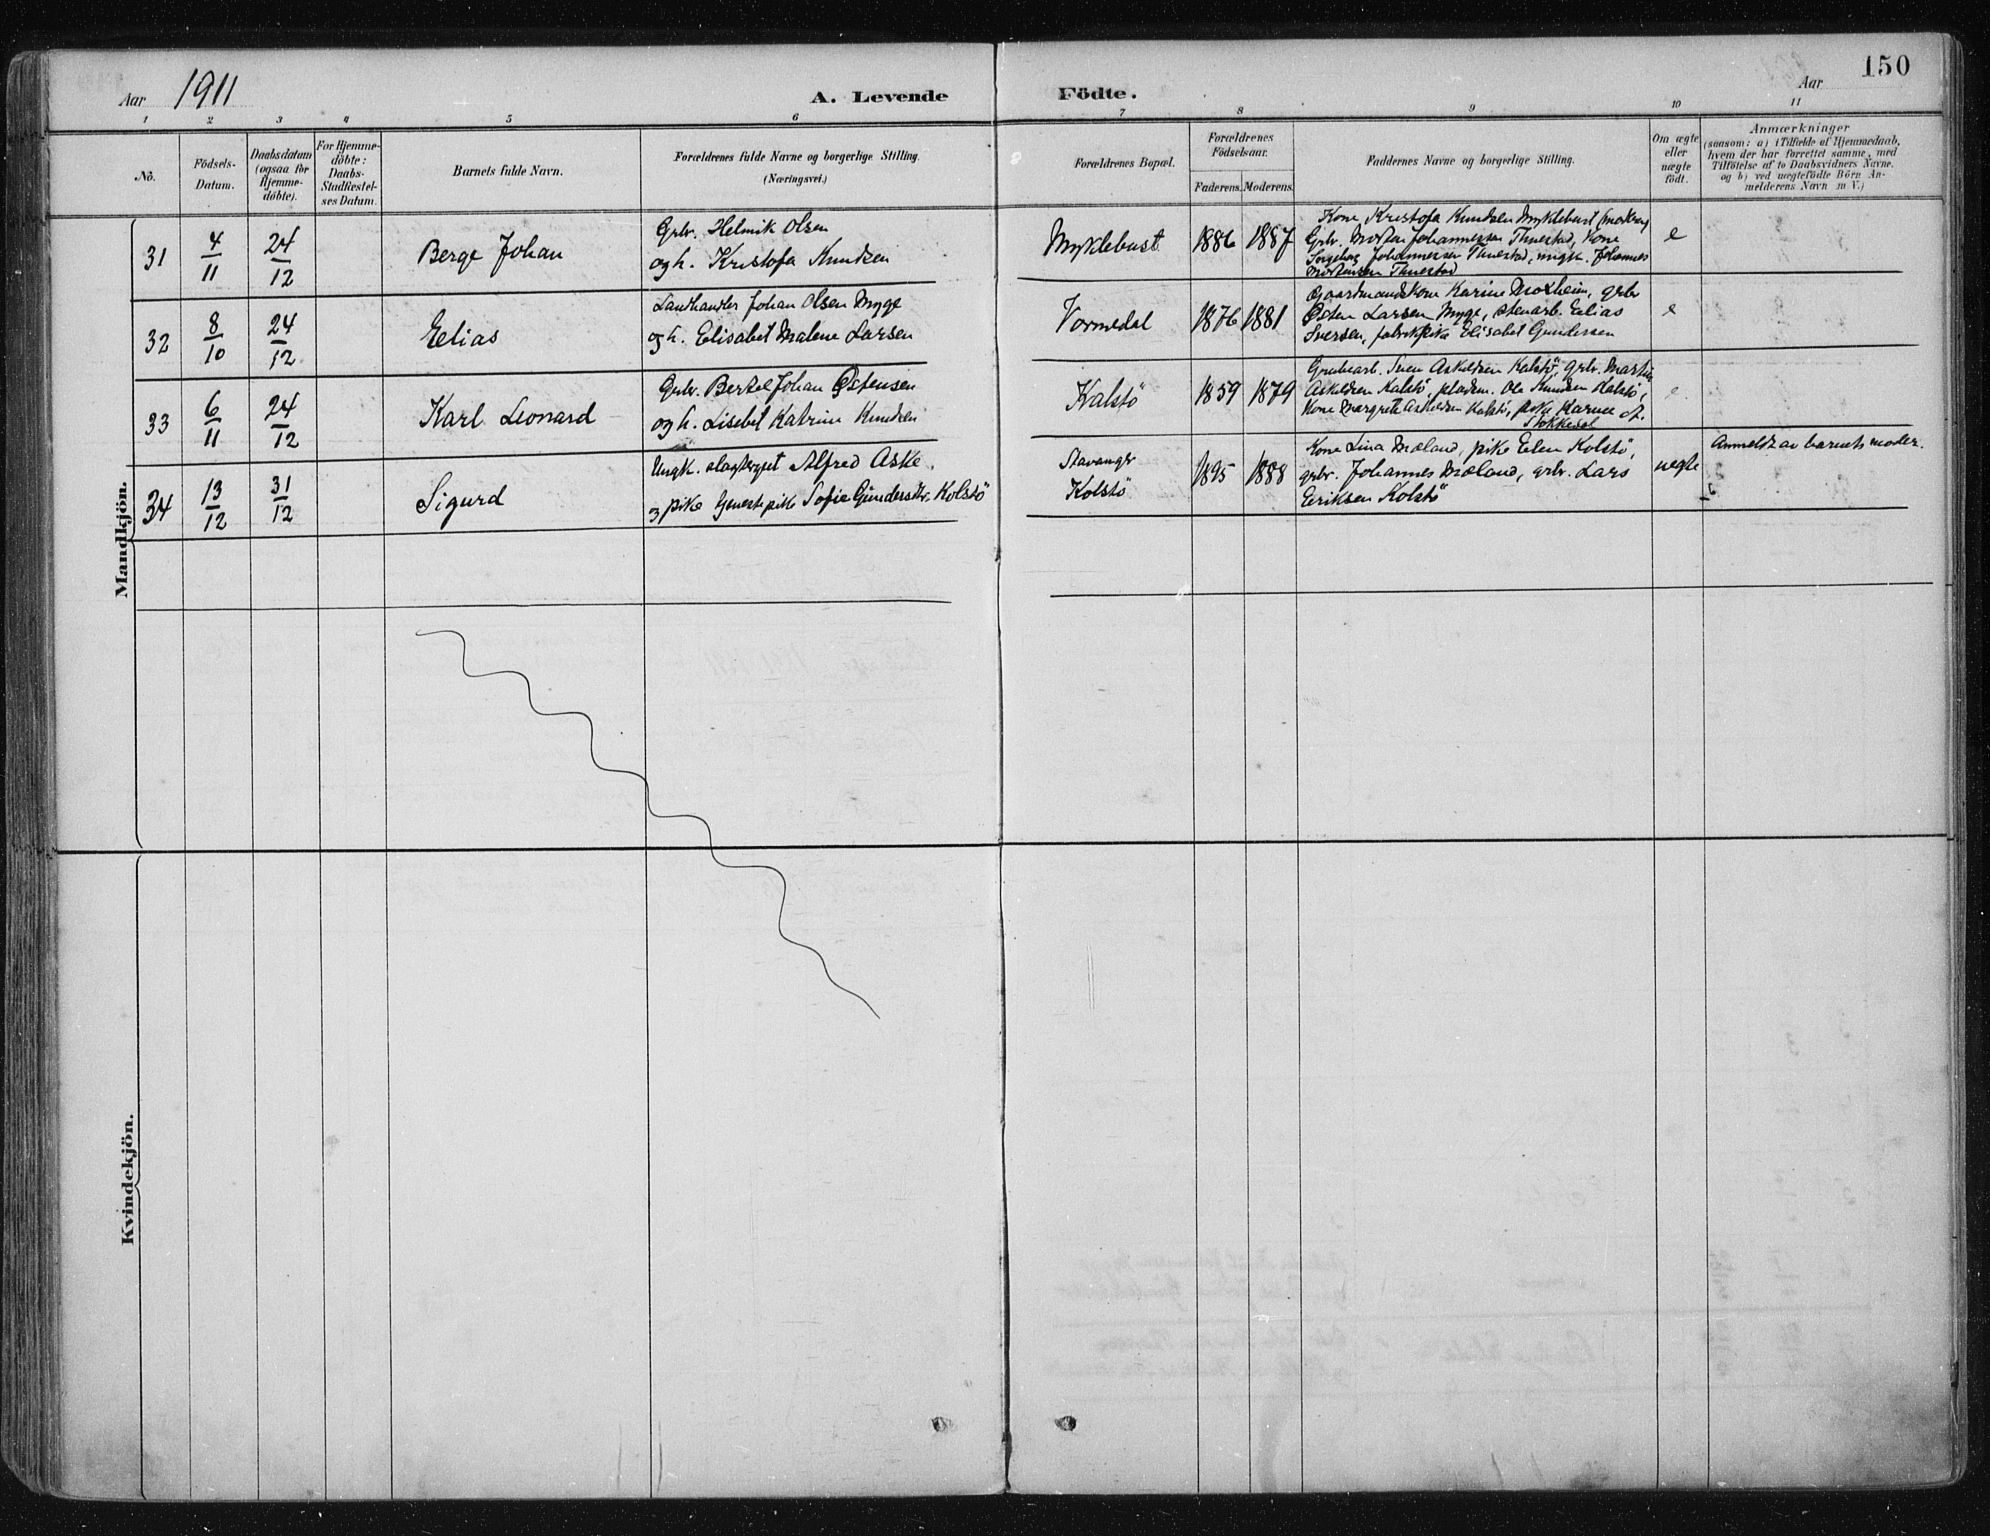 150
Aar 1911
A. Levende Födte.
Aar
1 2 3 4 5 6 7 8 9 10 11
No.
Födsels-
Datum.
Daabsdatum
(ogsaa for
Hjemme-
döbte).
For Hjemme-
döbte:
Daabs-
Stadfæstel-
ses Datum.
Barnets fulde Navn.
Forældrenes fulde Navne og borgerlige Stilling.
(Næringsvei.)
Forældrenes Bopæl.
Forældrenes
Födselsaar.
Faderens. Moderens.
Faddernes Navne og borgerlige Stilling.
Om ægte
eller
uægte
födt.
Anmærkninger
(saasom: a) i Tilfælde af Hjemmedaab,
hvem der har forrettet samme, med
Tilföielse af to Daabsvidners Navne.
og b) ved uægtefödte Börn An-
melderens Navn m. V.)
Mandkjön.
31 4/11 24/12 Berge Johan
Grbr. Helmik Olsen
og h. Kristofa Knudsen
Myklebust 1886 1887
Kone Kristofa Knudsen Myklebust
Grbr. Morten Johannessen Thuestad, Kone
Ingeborg Johannessen Thuestad, ungk. Johannes
Mortensen Thuestad
e
32 8/10 24/12 Elias
Landhandler Johan Olsen Myge
og h. Elisabet Malene Larsen
Vormedal 1876 1881
Gaardmandskone Karine Moxheim, grbr
Østen Larsen Myge, stenarb. Elias
Iversen, fabrikpike Elisabet Gundersen
e
33 6/11 24/12 Karl Leonard
Grbr. Bertel Johan Østensen
og h. Lisebet Katrine Knudsen
Kalstö 1859 1879
Grubearb. Sven Askildsen Kalstö, grbr. Martin
Askildsen Kalstö, Ole Knudsen Kalstö,
Kone Margrete Askildsen Kalstö, pike Karine
Stokkedal
e
34 13/12 31/12 Sigurd
Ungk. Alfred Aske.
pike Sofie Gundersdtr. Kolstö
Stavanger
Kolstö
1895 1888
Kone Lina Mæland, pike Elen Kolstö,
grbr. Johannes Mæland, grbr. Lars
Eriksen Kolstö
uegte
Anmeldt av barnets moder.
Kvindekjön.